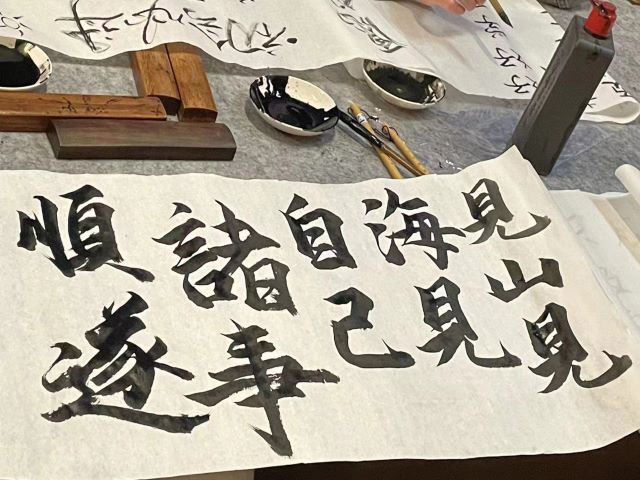 見山見
海見
自己
諸事
順遂